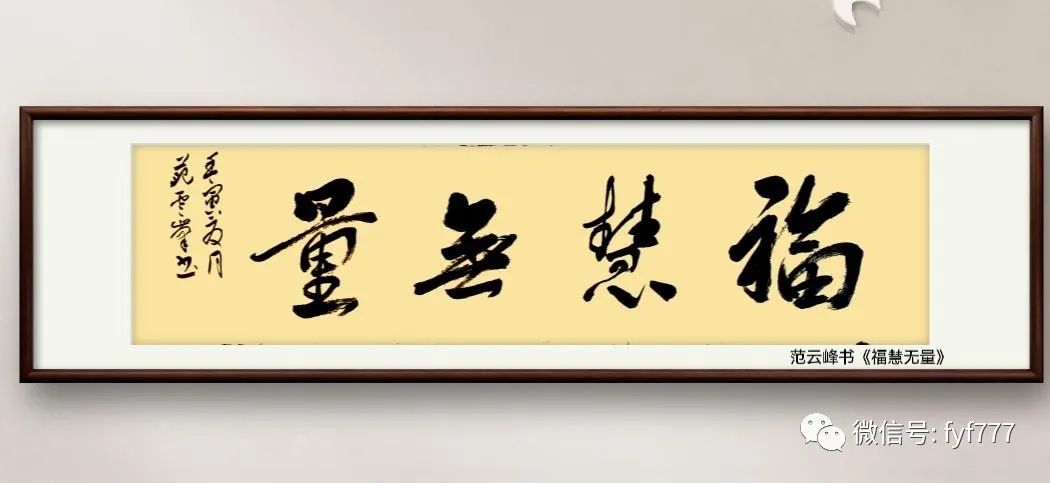 福慧無量
壬寅夏月
范雲峯書
范云峰书《福慧无量》
微信号: fyf777